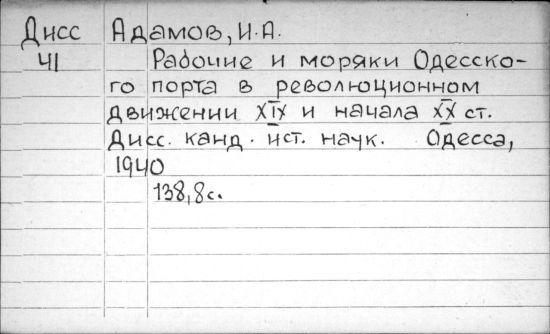 Дисс Адамов, И.А.
41 Рабочие и моряки Одесско-
го порта в революционном
движении XIX и начала XX ст.
Дисс. канд. ист. наук. Одесса,
1940
138,8с.